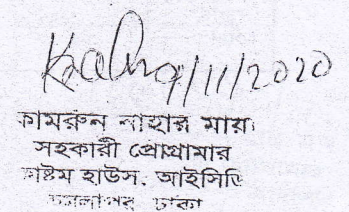 9/11/2020
কামরুন নাহার মায়া
সহকারী প্রোগ্রামার
কাষ্টম হাউস. আইসিডি
কমলাপুর ঢাকা